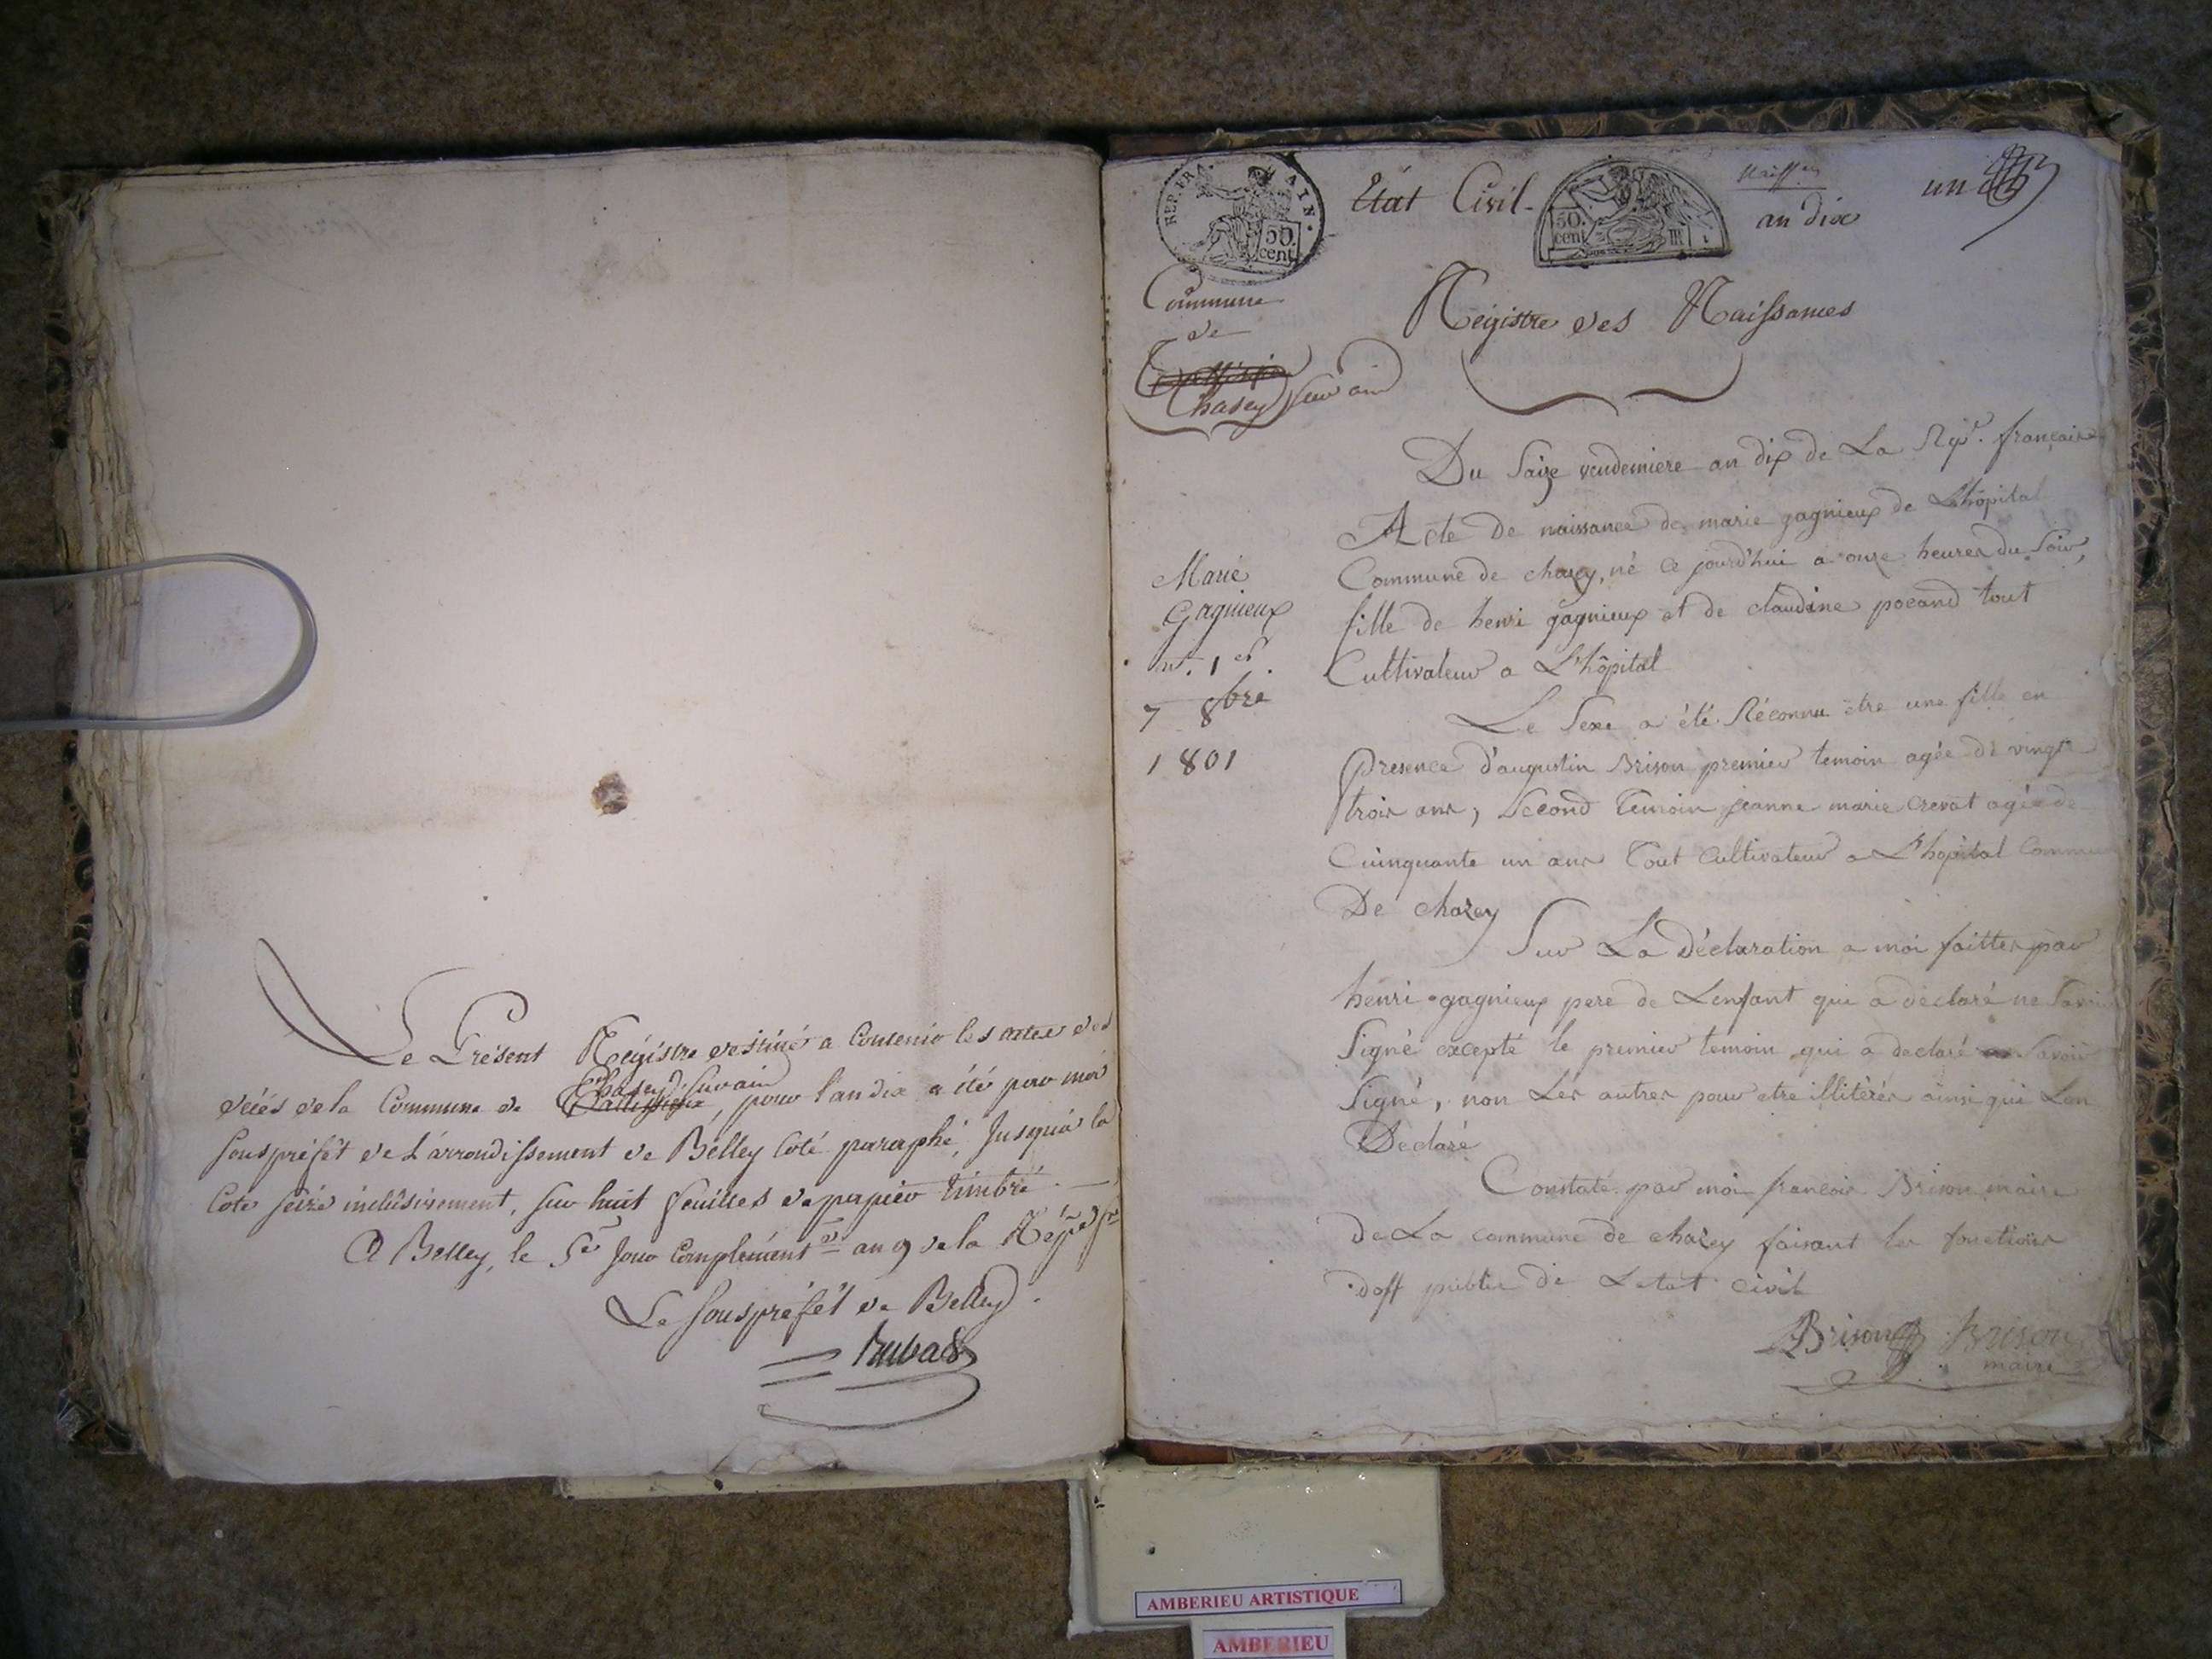 Le Présent Régistre destiné a Contenir les actes des
décés de la Commune de Chasey Sur ain, pour l'an dix a été par moi
Souspréfét de L'arrondissement de Belley Coté paraphé, Jusqu'à la
Cote seize inclusivement, sur huit feuilles de papier timbré.
A Belley, le 5e Jour Complément.re an 9 de la Rép.
Le Souspréfét de Belley.
REP. FRA. AIN.
50. cent
Etat Civil
50. cent
Naiss
an dix
un
Commune
de
Chasey sur ain
Régistre des Naissances
Du Saize vendemiere an dix de La Rep. française
Acte De naissance de marie gagnieux de L'hôpital
Commune de chazey, né ce jourd'hui a onze heures du Soir,
fille de henri gagnieux et de claudine pocand tout
Cultivateur a L'hôpital
Marie
Gagnieux
n°. 1er.
7 8bre
1801
Le Sexe a été Réconnu etre une fille en
presence d'augustin Brison premier temoin agée de vingt
trois ans, Second temoin jeanne marie crevat agée de
Cuinquante un ans Tout Cultivateur a L'hopital Commu
De chazey
Sur La Déclaration a moi faittes par
henri gagnieux pere de Lenfant qui a declaré ne Savoir
Signé excepté le premier temoin qui a declaré Savoir
Signé, non Les autres pour etre illitérés ainsi qui Lon
Declaré
Constaté par moi francois Brison maire
De La commune de chazey faisant les fonctions
doff public de Letat civil
Brison Brison
maire
AMBERIEU ARTISTIQUE
AMBERIEU